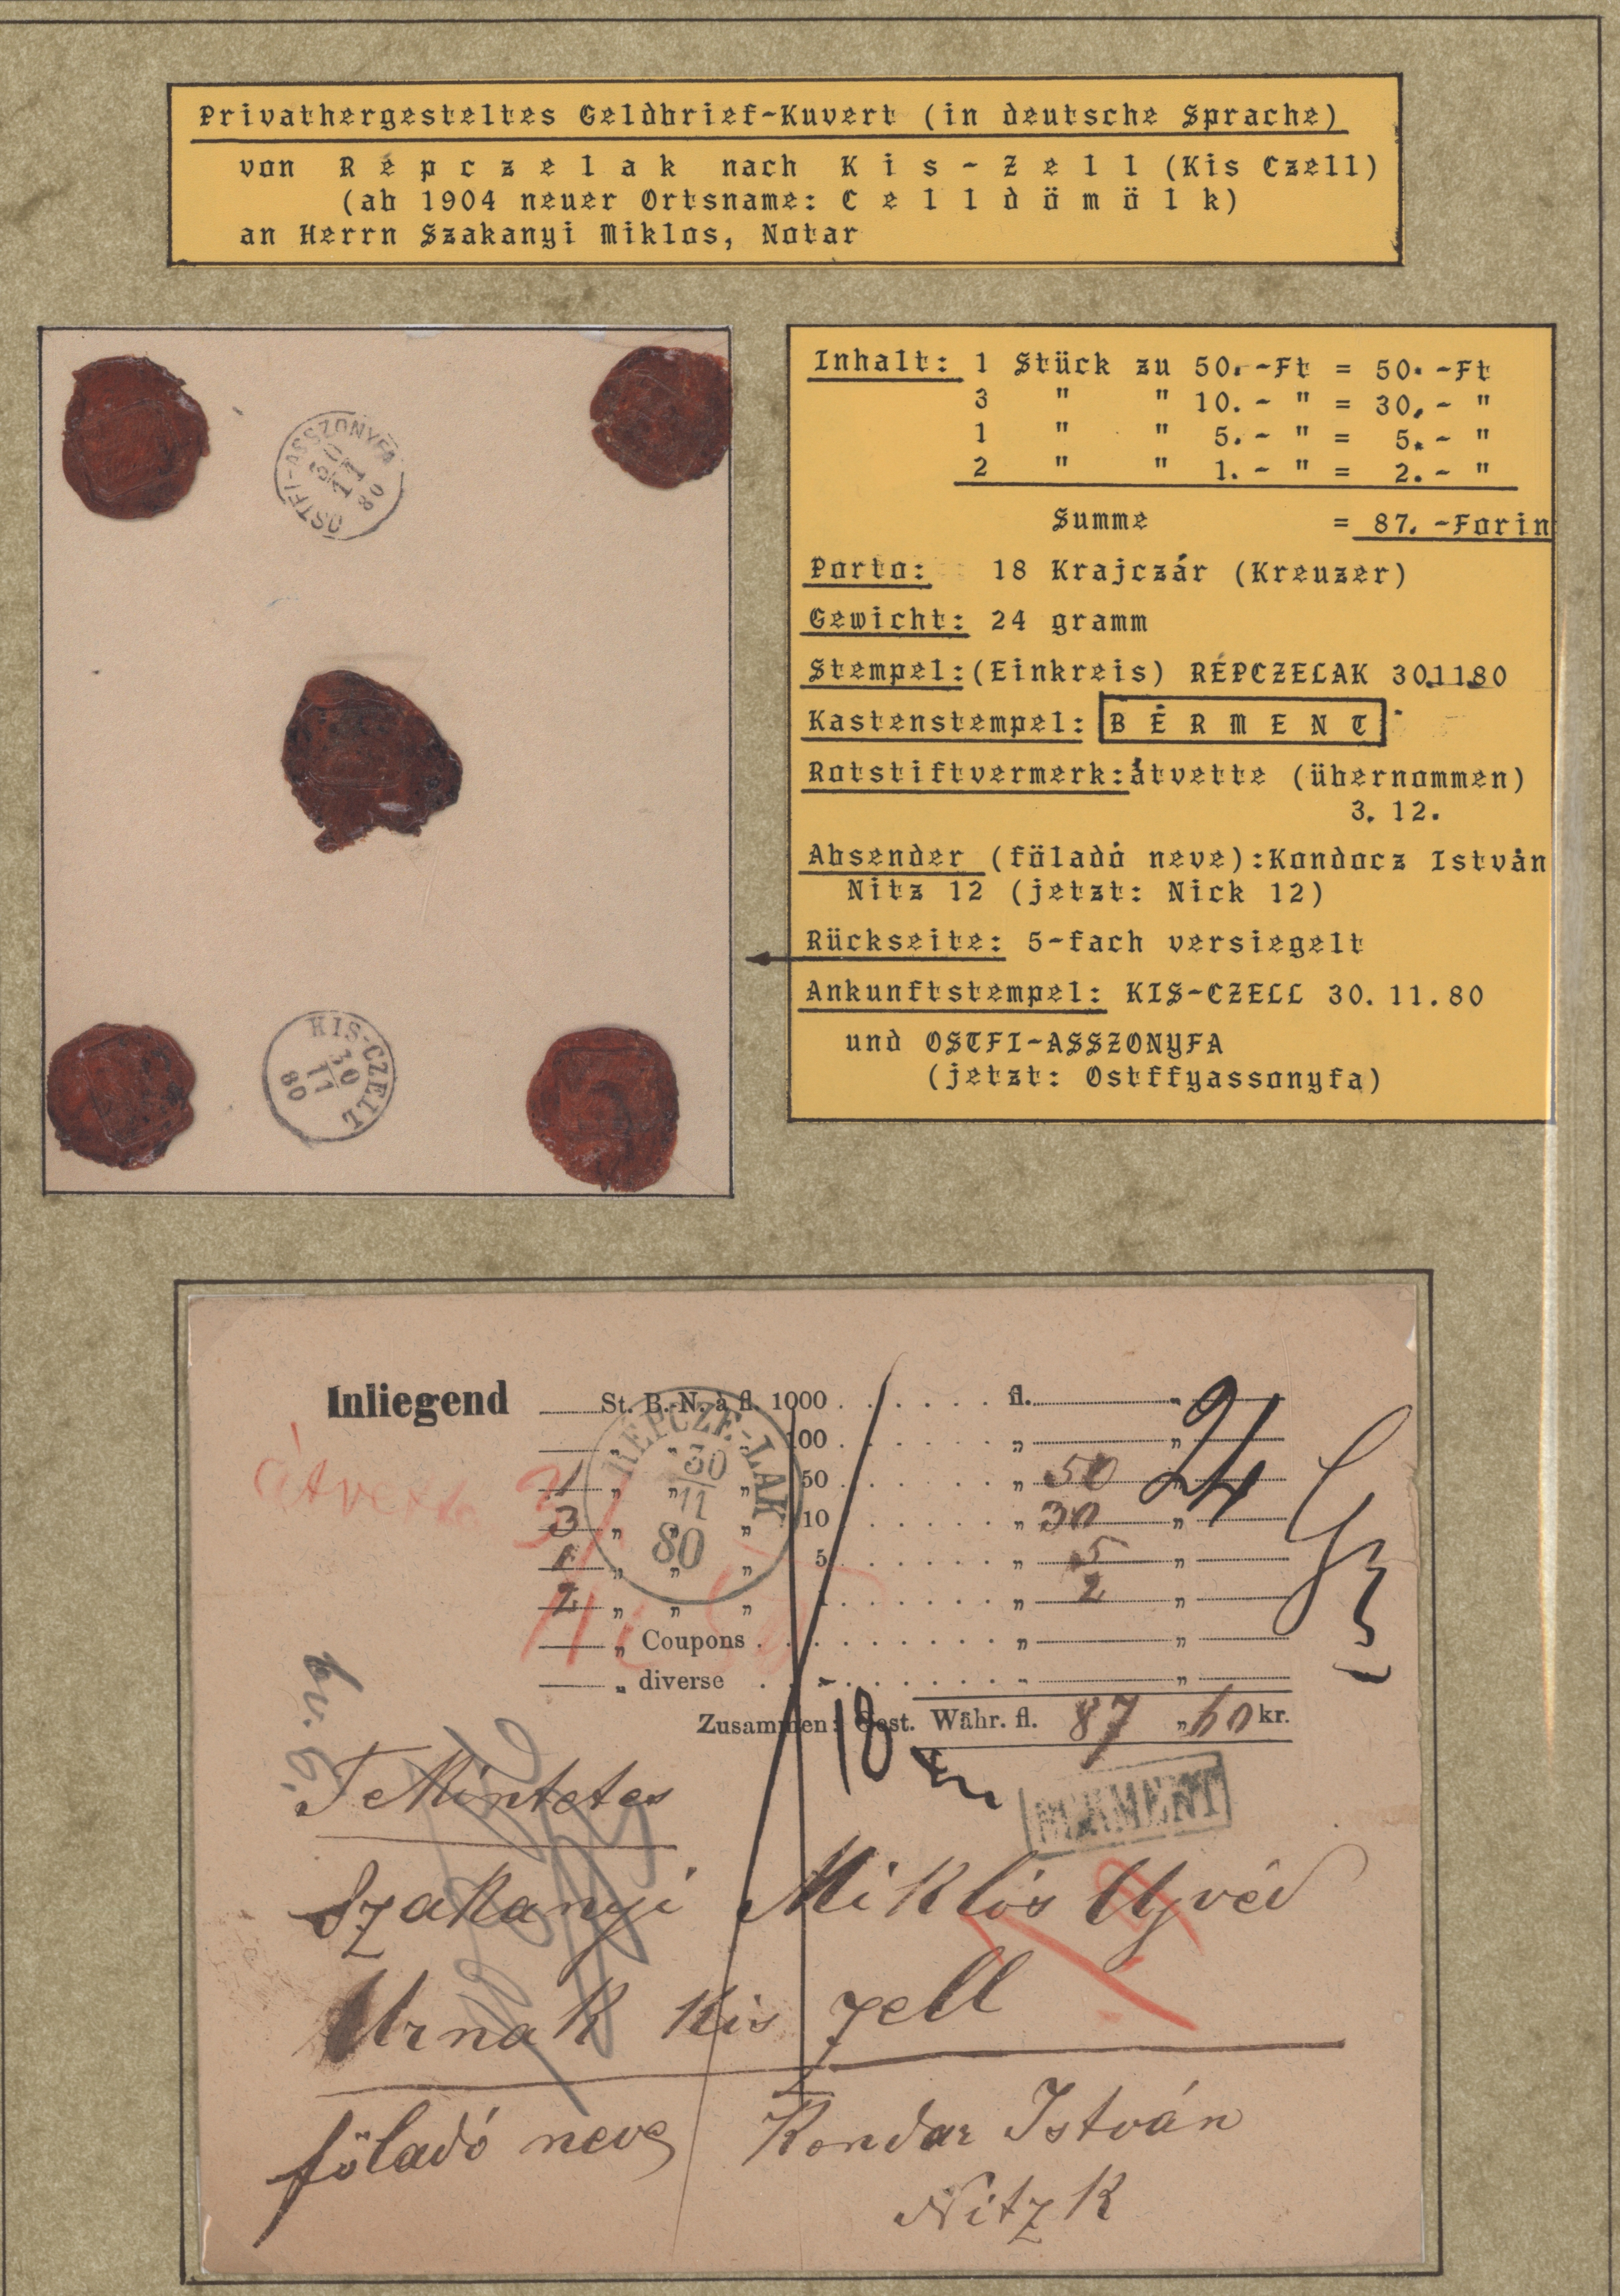 Privathergesteltes Geldbrief-Kuvert (in deutsche Sprache)
von Répczelak nach Kis-Zell (Kis Czell)
(ab 1904 neuer Ortsname: Celldömölk)
an Herrn Szakanyi Miklos, Notar
OSTFI-ASSZONYFA
30
11
80
KIS-CZELL
30
11
80
Inhalt: 1 Stück zu 50.-Ft = 50.-Ft
3 " " 10.- " = 30,- "
1 " " 5.- " = 5.- "
2 " " 1.- " = 2.- "
Summe = 87.-Forin
Porto: 18 Krajczár (Kreuzer)
Gewicht: 24 gramm
Stempel: (Einkreis) RÉPCZELAK 30.11.80
Kastenstempel: BÉRMENT
Rotstiftvermerk: átvette (übernommen)
3. 12.
Absender (föladó neve): Kondocz István
Nitz 12 (jetzt: Nick 12)
Rückseite: 5-fach versiegelt
Ankunftstempel: KIS-CZELL 30.11.80
und OSTFI-ASSZONYFA
(jetzt: Ostffyassonyfa)
Inliegend St. B.-N. à fl. 1000 . . . . . . fl. "
" " " 100 . . . . . . " "
1 " " " 50 . . . . . . " 50 "
3 " " " 10 . . . . . . " 30 "
1 " " " 5 . . . . . . " 5 "
2 " " " . . . . . . " 2 "
" Coupons . . . . . . " "
" diverse . . . . . . " "
Zusammen: Oest. Währ. fl. 87 " 60 kr.
24
átvette 3/
RÉPCZE-LAK
30
11
80
18
BÉRMENT
Tekintetes
Szakanyi Miklós Ügyvéd
Urnak Kis zell
föladó neve Kondar István
Nitz K